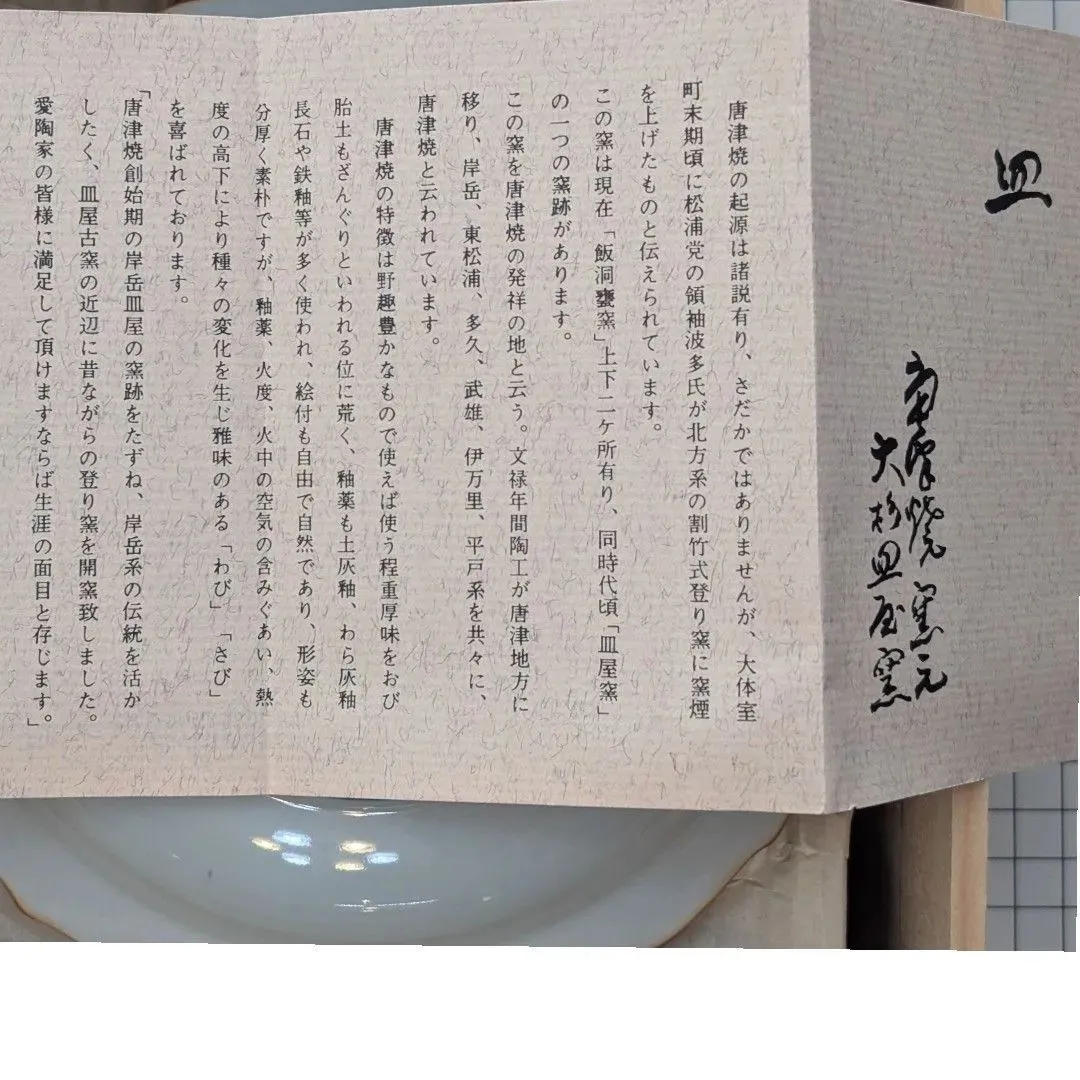 皿
唐津焼窯元
大杉皿屋窯
唐津焼の起源は諸説有り、さだかではありませんが、大体室
町末期頃に松浦党の領袖波多氏が北方系の割竹式登り窯に窯煙
を上げたものと伝えられています。
この窯は現在「飯洞甕窯」上下二ヶ所有り、同時代頃「皿屋窯」
の一つの窯跡があります。
この窯を唐津焼の発祥の地と云う。文禄年間陶工が唐津地方に
移り、岸岳、東松浦、多久、武雄、伊万里、平戸系を共々に、
唐津焼と云われています。
唐津焼の特徴は野趣豊かなもので使えば使う程重厚味をおび
胎土もざんぐりといわれる位に荒く、釉薬も土灰釉、わら灰釉
長石や鉄釉等が多く使われ、絵付も自由で自然であり、形姿も
分厚く素朴ですが、釉薬、火度、火中の空気の含みぐあい、熱
度の高下により種々の変化を生じ雅味のある「わび」「さび」
を喜ばれております。
「唐津焼創始期の岸岳皿屋の窯跡をたずね、岸岳系の伝統を活か
したく、皿屋古窯の近辺に昔ながらの登り窯を開窯致しました。
愛陶家の皆様に満足して頂けますならば生涯の面目と存じます。」